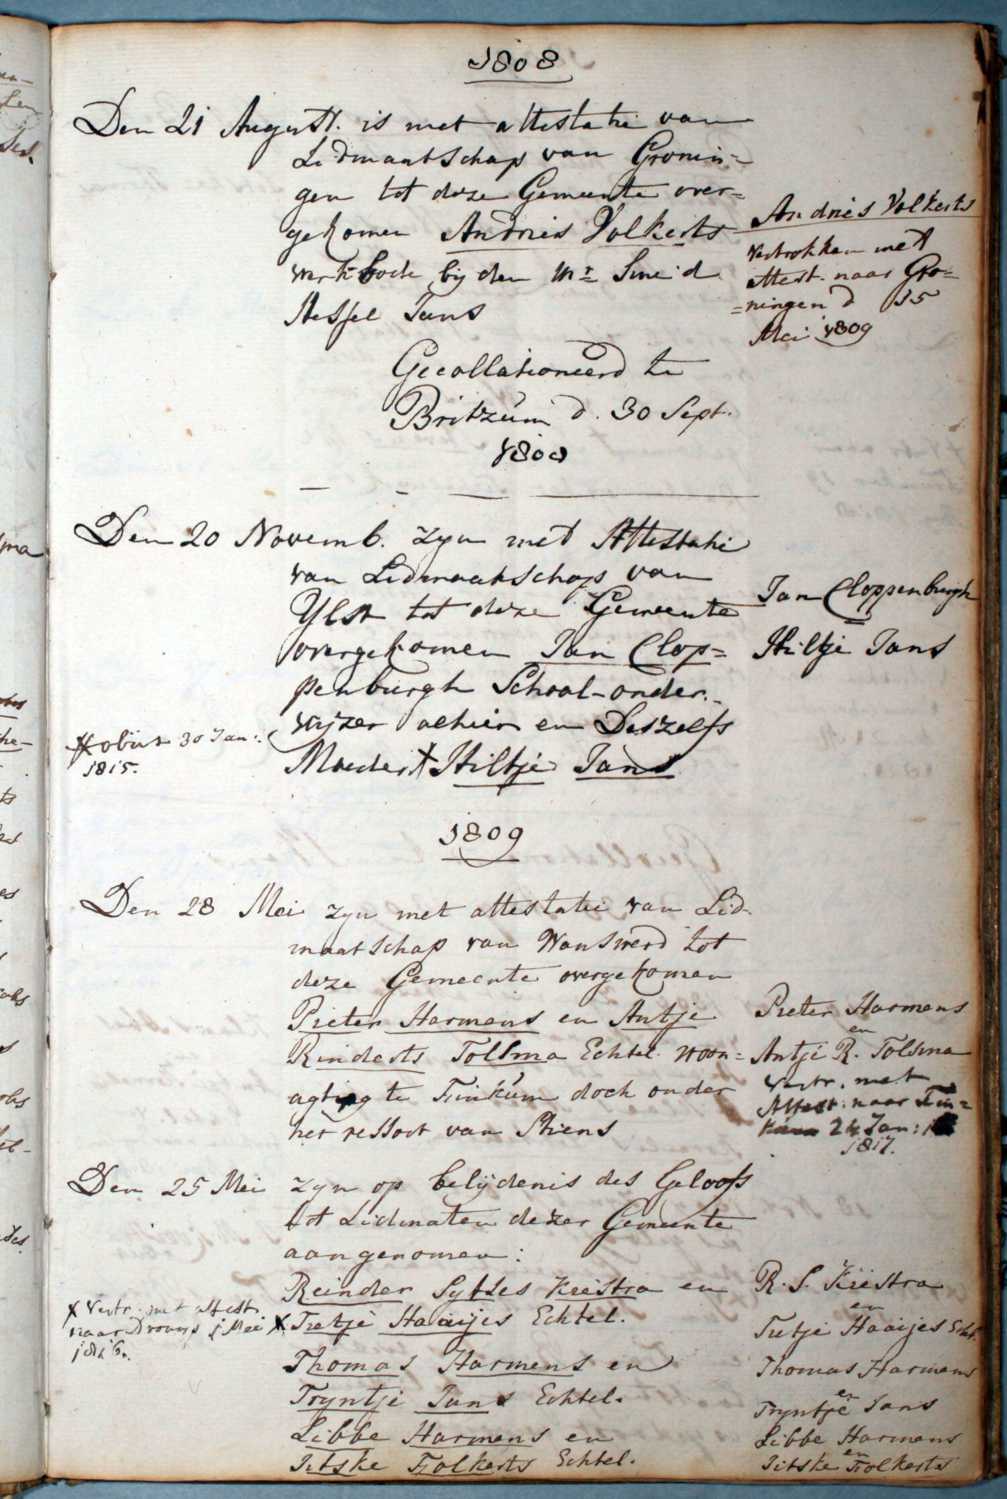 1808
Den 21 August. is met attestatie van
Lidmaatschap van Gronin=
gen tot deze Gemeente over=
gekomen Andries Volkerts
bij den Mr Smid
Hessel Jans
Andries Volkerts
vertrokken met
attest. naar Gro=
=ningen d 15
Mei 1809
Gecollationeerd te
Britzum d. 30 Sept.
1808
Den 20 Novemb. zyn met Attestatie
van Lidmaatschap van
Ylst tot deze Gemeente
overgekomen Jan Clop=
penburgh School-onder-
wijzer alhier en Deszelfs
Moeder X Hiltje Jans
Jan Cloppenburgh
Hiltje Jans
X obiit 30 Jan:
1815.
1809
Den 28 Mei zyn met attestatie van Lid-
maatschap van Wanswerd tot
deze Gemeente overgekomen
Pieter Harmens en Antje
Rinderts Tolsma Echtel. woon=
agtig te Finkum doch onder
het ressort van Stiens
Pieter Harmens
en
Antje R. Tolsma
vertr. met
Attest: naar Fin=
kum 24 Jan:
1817.
Den 25 Mei zyn op belijdenis des Geloofs
tot Lidmaten dezer Gemeente
aangenomen:
Reinder Sytses Keestra en
X Tietje Haaijes Echtel.
Thomas Harmens en
Tryntje Jans Echtel.
Libbe Harmens en
Jitske Folkerts Echtel.
X Vertr. met attest.
naar Mei
R. S. Kiestra
en
Tietje Haaijes Echt.
Thomas Harmens
en
Tryntje Jans
Libbe Harmens
en
Jitske Folkerts